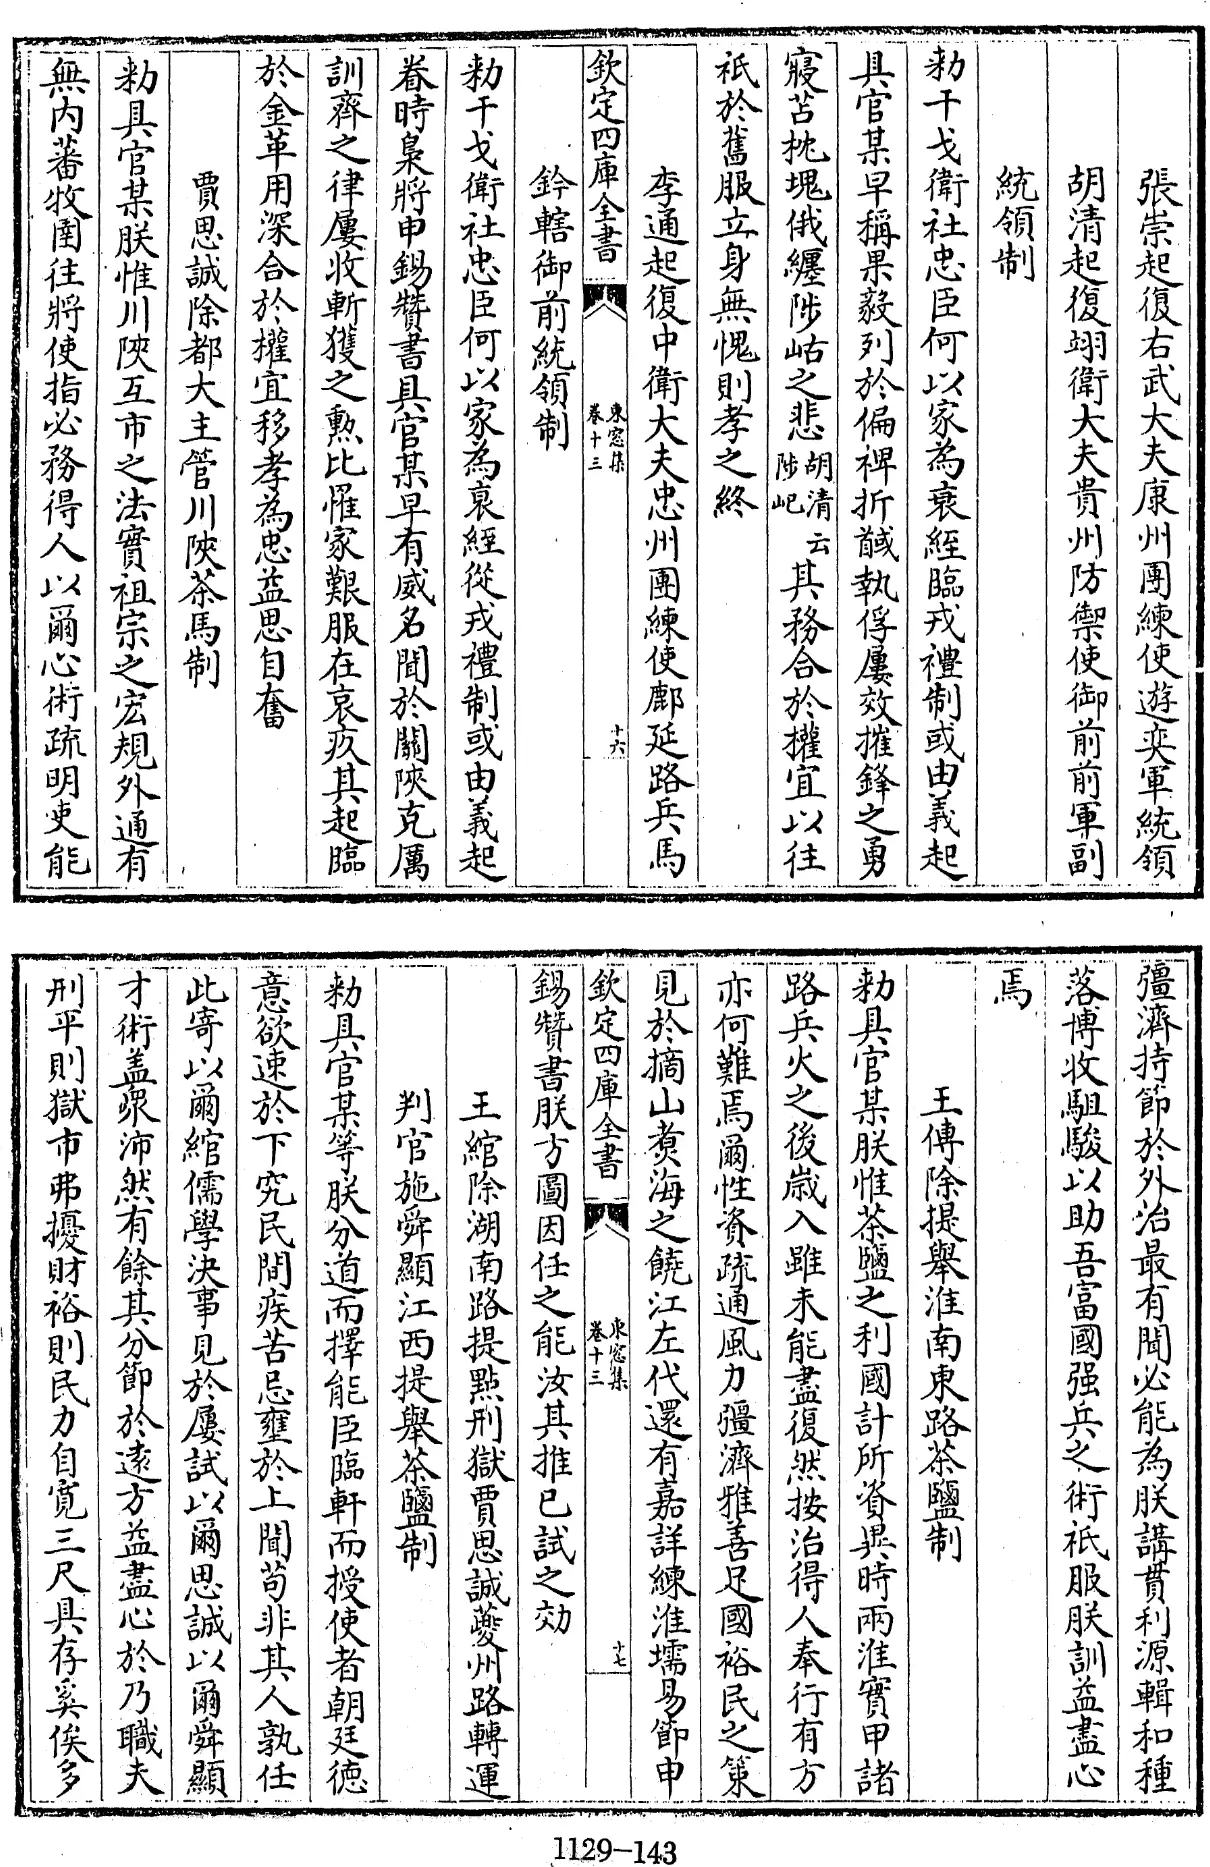 張崇起復右武大夫康州團練使遊奕軍統領
胡清起復翊衛大夫貴州防禦使御前前軍副
統領制
勅干戈衛社忠臣何以家為衰絰臨戎禮制或由義起
具官某早稱果毅列於偏裨折馘執俘屢效摧鋒之勇
寢苫枕塊俄纏陟岵之悲胡清云陟屺其務合於權宜以往
祗於舊服立身無愧則孝之終
李通起復中衛大夫忠州團練使鄜延路兵馬
欽定四庫全書
東窓集
卷十三
十六
鈐轄御前統領制
勅干戈衛社忠臣何以家為衰絰從戎禮制或由義起
眷時梟將申錫贊書具官某早有威名聞於關陜克厲
訓齊之律屢收斬獲之勲比罹家艱服在哀疚其起臨
於金革用深合於權宜移孝為忠益思自奮
賈思誠除都大主管川陜茶馬制
勅具官某朕惟川陜互市之法實祖宗之宏規外通有
無内蕃牧圉往將使指必務得人以爾心術疏明吏能
彊濟持節於外治最有聞必能為朕講貫利源輯和種
落博收駔駿以助吾富國强兵之術祗服朕訓益盡心
焉
王傅除提舉淮南東路茶鹽制
勅具官某朕惟茶鹽之利國計所資異時兩淮實甲諸
路兵火之後嵗入雖未能盡復然按治得人奉行有方
亦何難焉爾性資疏通風力彊濟雅善足國裕民之策
見於摘山煑海之饒江左代還有嘉詳練淮壖易節申
欽定四庫全書
東窓集
卷十三
十七
錫贊書朕方圖因任之能汝其推已試之効
王綰除湖南路提㸃刑獄賈思誠夔州路轉運
判官施舜顯江西提舉茶鹽制
勅具官某等朕分道而擇能臣臨軒而授使者朝廷德
意欲速於下究民間疾苦忌壅於上聞苟非其人孰任
此寄以爾綰儒學決事見於屢試以爾思誠以爾舜顯
才術盖衆沛然有餘其分節於逺方益盡心於乃職夫
刑平則獄市弗擾財裕則民力自寛三尺具存奚俟多
1129-143